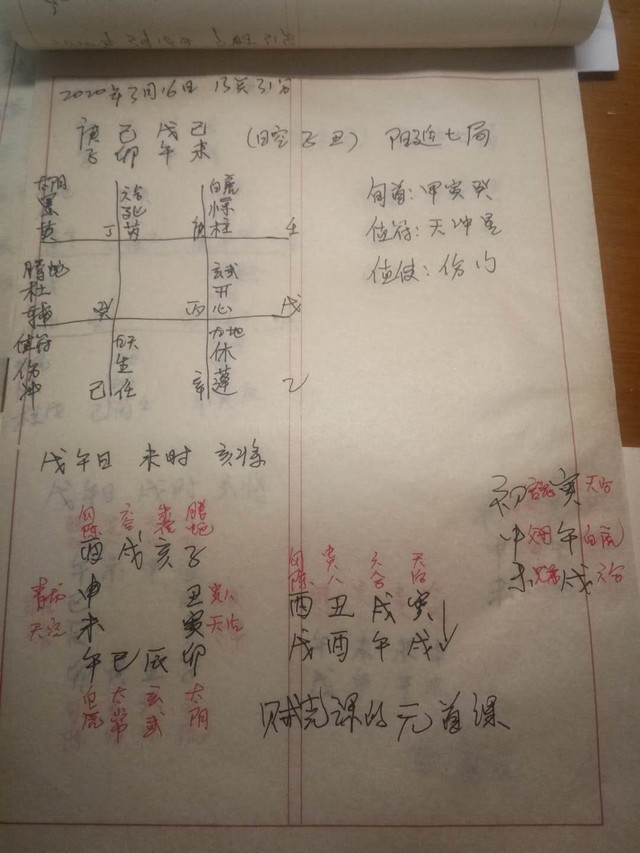 2020年3月16日 13点31分
庚 己 戊 己 (日空子丑) 阳遁七局
子 卯 午 未
旬首:甲寅癸
值符:天冲星
值使:伤门
太阴 六合 白虎
景 死 惊
英 丁 芮 庚 柱 壬
腾蛇 玄武
杜 开
辅 癸 丙 心 戊
值符 九天 九地
伤 生 休
冲 己 任 辛 蓬 乙
戊午日 未时 亥将
勾陈 六合 朱雀 腾蛇
酉 戌 亥 子
青龙 申 丑 贵人
天空 未 寅 天后
午 巳 辰 卯
白虎 太常 玄武 太阴
勾陈 贵人 六合 天后
酉 丑 戌 寅
戌 酉 午 戌
初 官鬼 寅 天后
中 父母 午 白虎
末 兄弟 戌 六合
贼克课的元首课